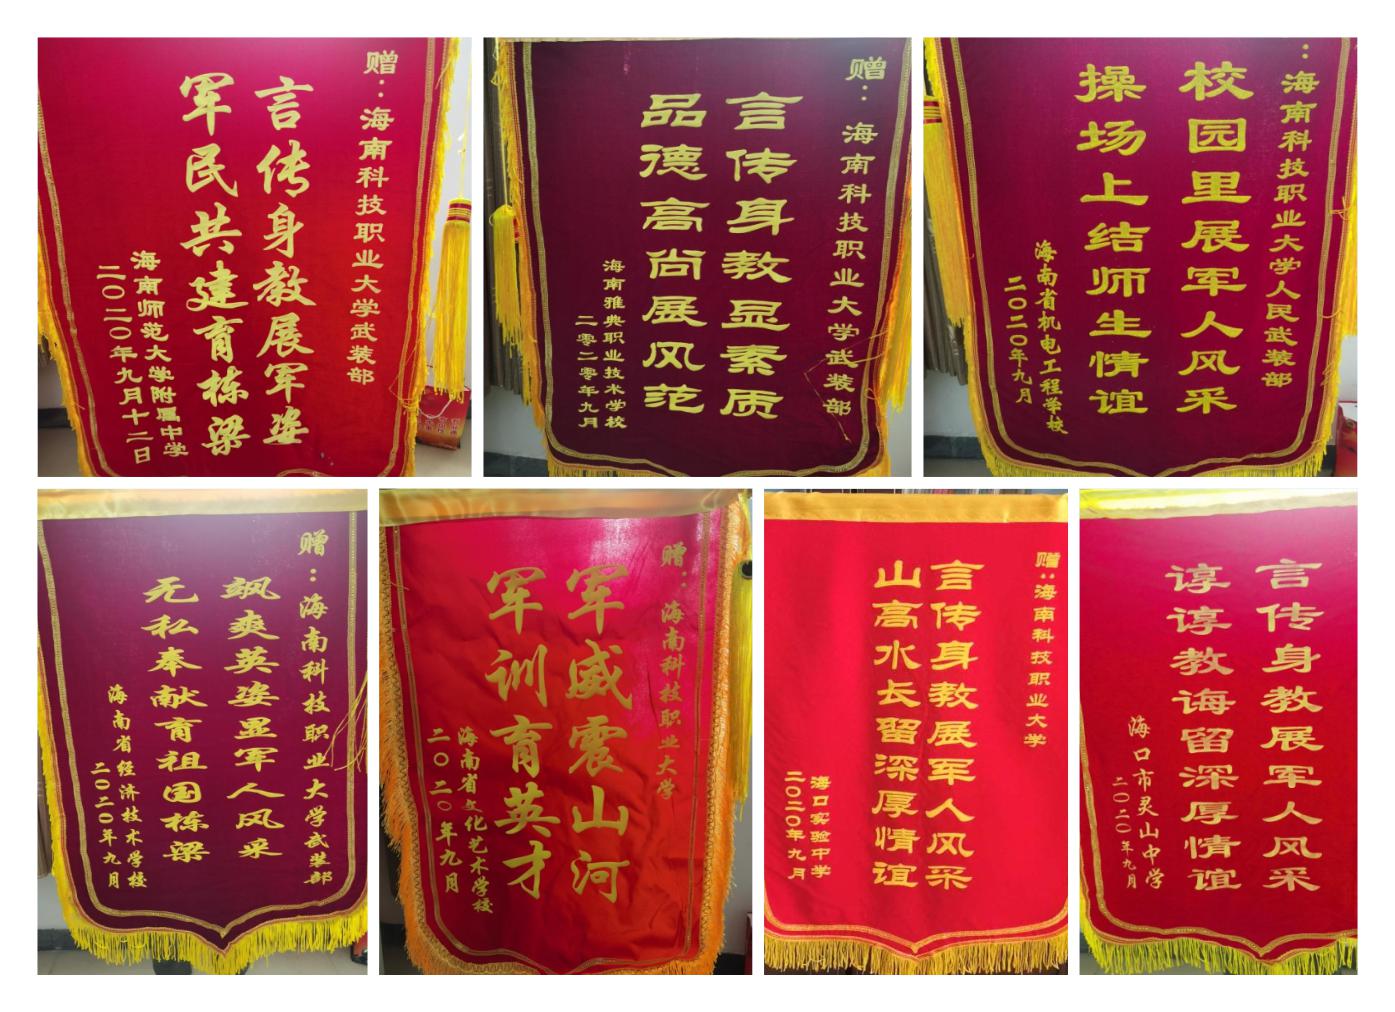 赠：海南科技职业大学武装部
言传身教展军姿
军民共建育栋梁
海南师范大学附属中学
二〇二〇年九月十二日
赠：海南科技职业大学武装部
言传身教显素质
品德高尚展风范
海南雅典职业技术学校
二零二零年九月
：海南科技职业大学人民武装部
校园里展军人风采
操场上结师生情谊
海南省机电工程学校
二〇二〇年九月
赠：海南科技职业大学武装部
飒爽英姿显军人风采
无私奉献育祖国栋梁
海南省经济技术学校
二〇二〇年九月
赠：海南科技职业大学
军威震山河
军训育英才
海南省文化艺术学校
二〇二〇年九月
赠：海南科技职业大学
言传身教展军人风采
山高水长留深厚情谊
海口实验中学
二〇二〇年九月
言传身教展军人风采
谆谆教诲留深厚情谊
海口市灵山中学
二〇二〇年九月